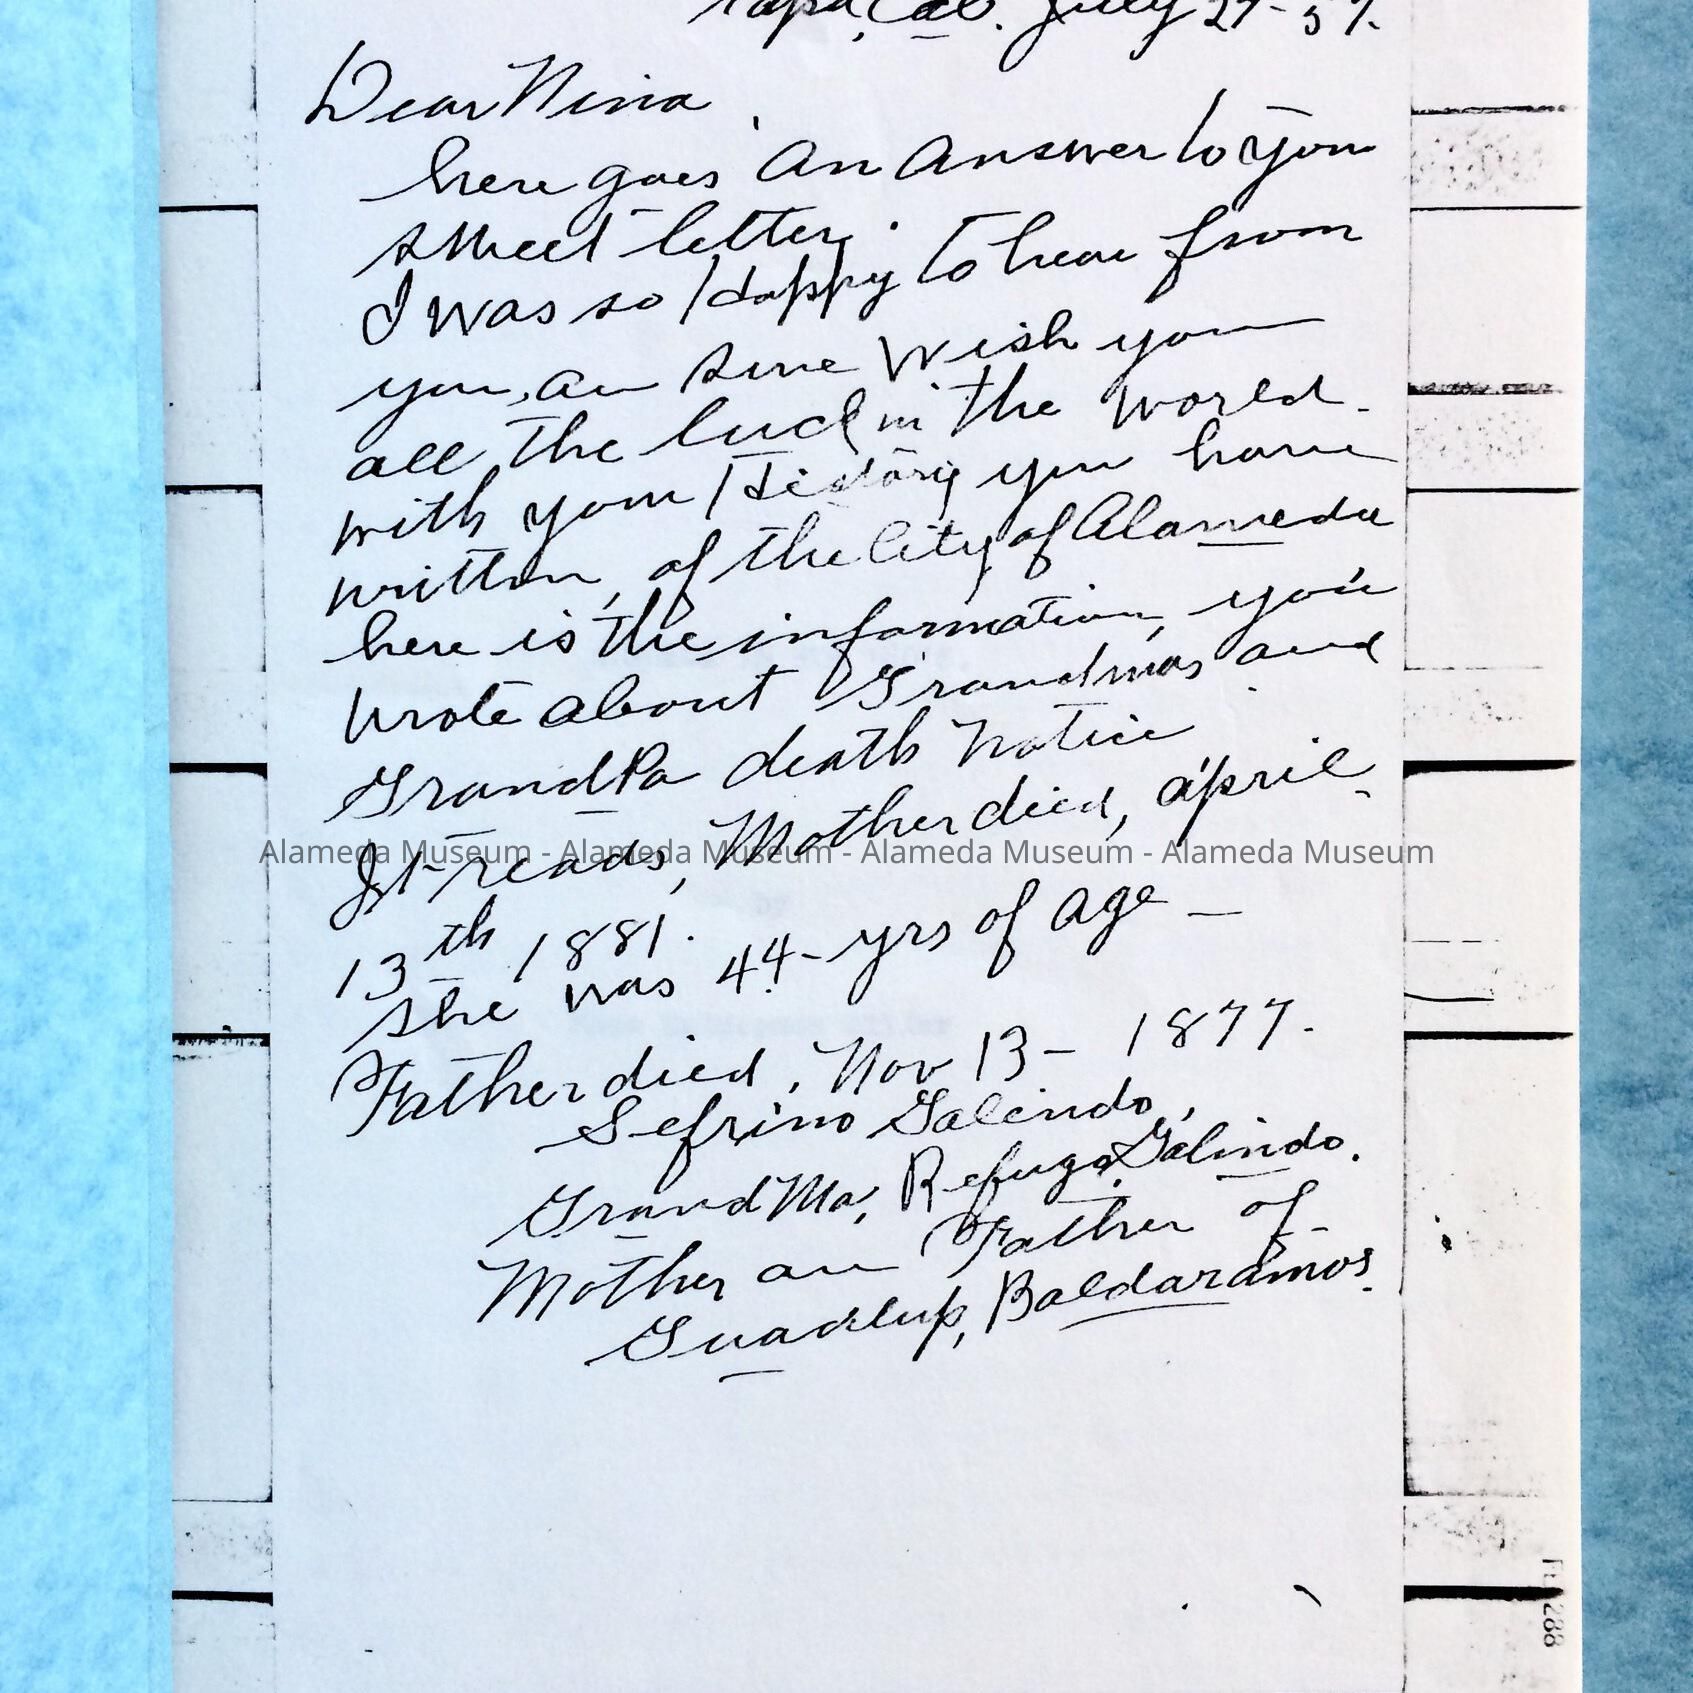 Napa, Cal. July 27-57.
Dear Nina,
here goes An Answer to your
sweet letter.
I was so Happy to hear from
you, an sure Wish you
all the luck in the World.
with your History you have
written, of the City of Alameda
here is the information, you
wrote about Grandmas and
GrandPa death notice
It reads, Mother died, april
13th 1881.
she was 44- yrs of Age -
Father died, Nov 13 - 1877.
Sefrino Galindo,
GrandMa, Refugo Galindo.
Mother an Father of
Guadlup, Baldaramos.
Alameda Museum - Alameda Museum - Alameda Museum - Alameda Museum
288